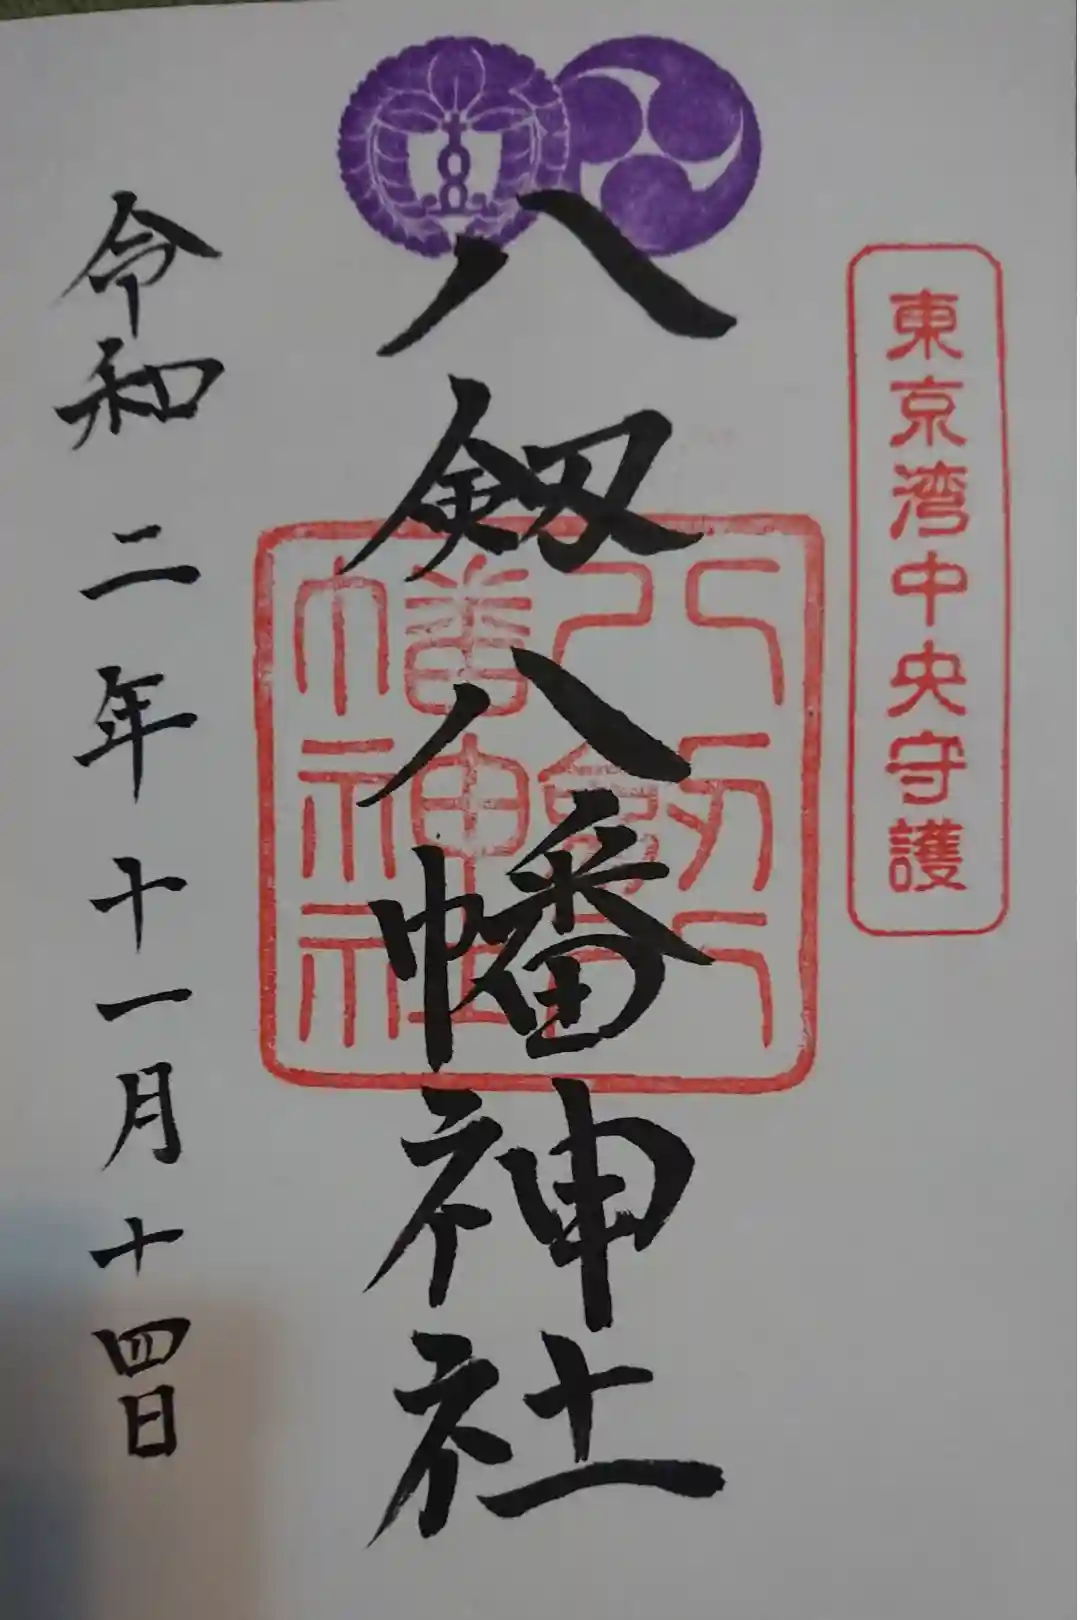 東京湾中央守護
八剱八幡神社
八剱八幡神社
令和二年十一月十四日